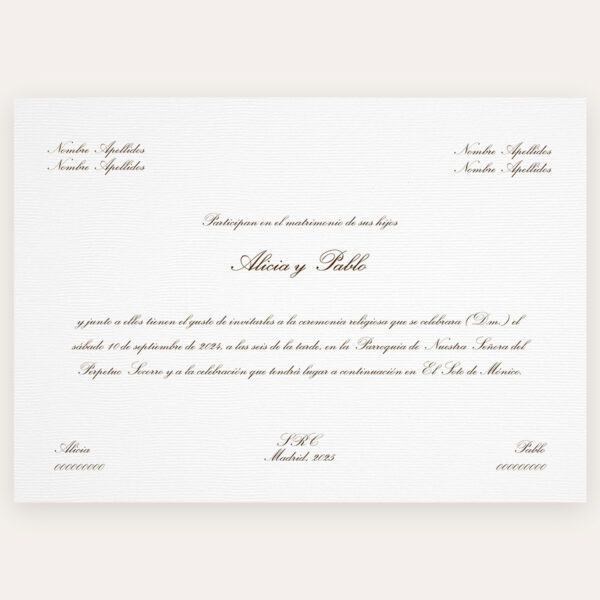 Nombre Apellidos Nombre Apellidos
Nombre Apellidos Nombre Apellidos
Participan en el matrimonio de sus hijos
Alicia y Pablo
y junto a ellos tienen el gusto de invitarles a la ceremonia religiosa que se celebrara (D.m.) el
sábado 10 de septiembre de 2024, a las seis de la tarde, en la Parroquia de Nuestra Señora del
Pérpetuo Socorro y a la celebración que tendrá lugar a continuación en El Soto de Mónico.
Alicia S.R.C Pablo
000000000 Madrid, 2025 000000000